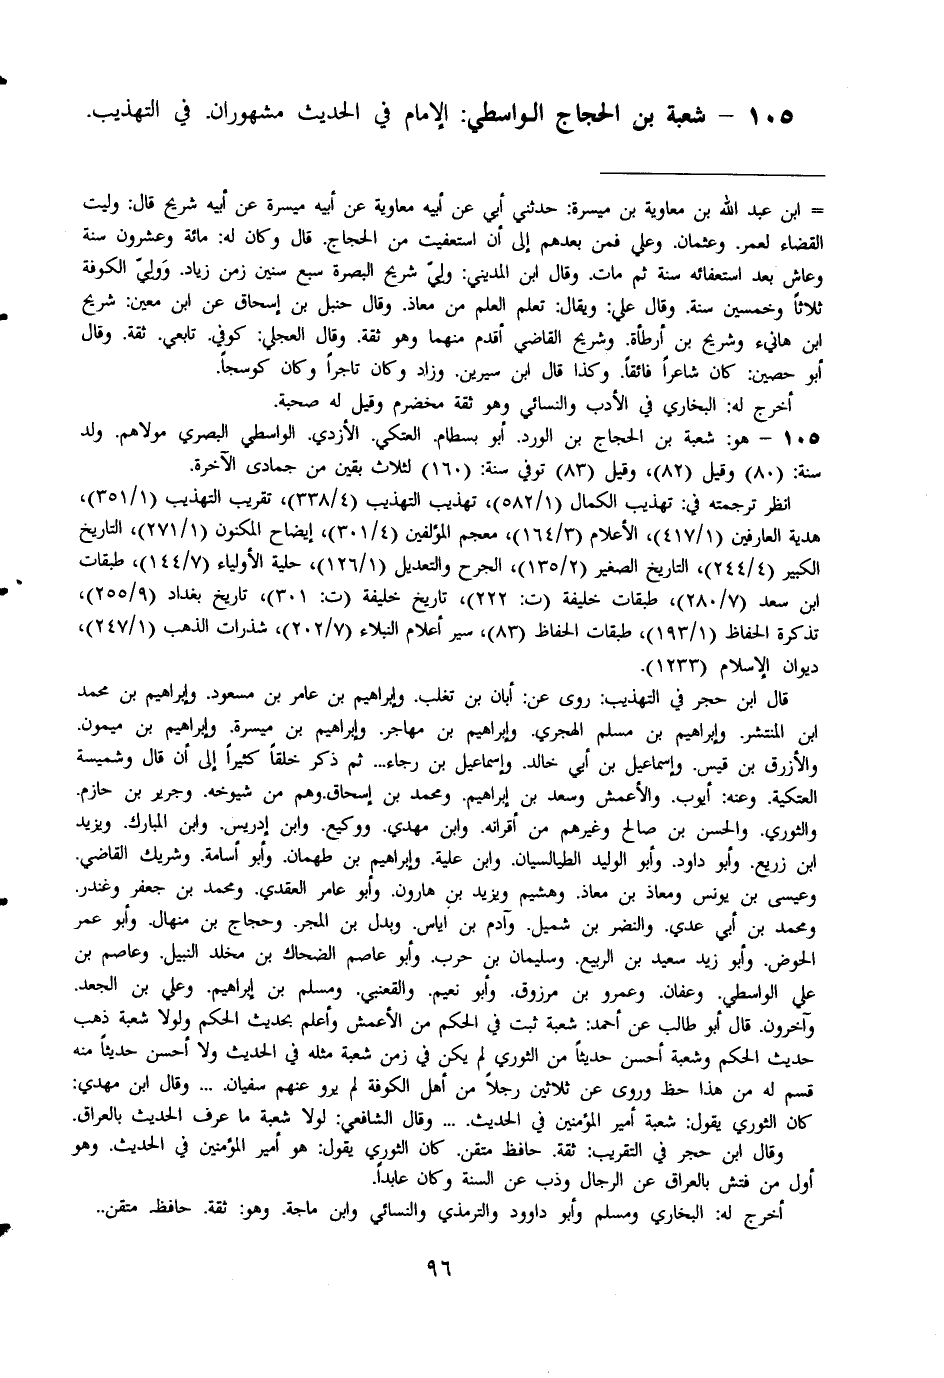 ١٠٥ - شعبة بن الحجاج الواسطي: الإمام في الحديث مشهوران. في التهذيب.
= ابن عبد الله بن معاوية بن ميسرة: حدثني أبي عن أبيه معاوية عن أبيه ميسرة عن أبيه شريح قال: وليت
القضاء لعمر. وعثمان. وعلي فمن بعدهم إلى أن استعفيت من الحجاج. قال وكان له: مائة وعشرون سنة
وعاش بعد استعفائه سنة ثم مات. وقال ابن المديني: وليّ شريح البصرة سبع سنين زمن زياد. وَوليّ الكوفة
ثلاثاً وخمسين سنة. وقال علي: ويقال: تعلم العلم من معاذ. وقال حنبل بن إسحاق عن ابن معين: شريح
ابن هانيء وشريح بن أرطأة. وشريح القاضي أقدم منهما وهو ثقة. وقال العجلي: كوفي. تابعي. ثقة. وقال
أبو حصين: كان شاعراً فائقاً. وكذا قال ابن سيرين. وزاد وكان تاجراً وكان كوسجاً.
أخرج له: البخاري في الأدب والنسائي وهو ثقة مخضرم وقيل له صحبة.
١٠٥ - هو: شعبة بن الحجاج بن الورد. أبو بسطام. العتكي. الأزدي. الواسطي البصري مولاهم. ولد
سنة: (٨٠) وقيل (٨٢)، وقيل (٨٣) توفي سنة: (١٦٠) لثلاث بقين من جمادى الآخرة.
انظر ترجمته في: تهذيب الكمال (٥٨٢/١)، تهذيب التهذيب (٣٣٨/٤)، تقريب التهذيب (٣٥١/١)،
هدية العارفين (٤١٧/١)، الأعلام (١٦٤/٣)، معجم المؤلفين (٣٠١/٤)، إيضاح المكنون (٢٧١/١)، التاريخ
الكبير (٢٤٤/٤)، التاريخ الصغير (١٣٥/٢)، الجرح والتعديل (١٢٦/١)، حلية الأولياء (١٤٤/٧)، طبقات
ابن سعد (٢٨٠/٧)، طبقات خليفة (ت: ٢٢٢)، تاريخ خليفة (ت: ٣٠١)، تاريخ بغداد (٢٥٥/٩)،
تذكرة الحفاظ (١٩٣/١)، طبقات الحفاظ (٨٣)، سير أعلام النبلاء (٢٠٢/٧)، شذرات الذهب (٢٤٧/١)،
ديوان الإسلام (١٢٣٣).
قال ابن حجر في التهذيب: روى عن: أبان بن تغلب. وإبراهيم بن عامر بن مسعود. وإبراهيم بن محمد
ابن المنتشر. وإبراهيم بن مسلم الهجري. وإبراهيم بن مهاجر. وإبراهيم بن ميسرة. وإبراهيم بن ميمون.
والأزرق بن قيس. وإسماعيل بن أبي خالد. وإسماعيل بن رجاء... ثم ذكر خلقاً كثيراً إلى أن قال وشميسة
العتكية. وعنه: أيوب. والأعمش وسعد بن إبراهيم. ومحمد بن إسحاق.وهم من شيوخه. وجرير بن حازم.
والثوري. والحسن بن صالح وغيرهم من أقرانه. وابن مهدي. ووكيع. وابن إدريس. وابن المبارك. ويزيد
ابن زريع. وأبو داود. وأبو الوليد الطيالسيان. وابن علية. وإبراهيم بن طهمان. وأبو أسامة. وشريك القاضي.
وعيسى بن يونس ومعاذ بن معاذ. وهشيم ويزيد بن هارون. وأبو عامر العقدي. ومحمد بن جعفر وغندر.
ومحمد بن أبي عدي. والنضر بن شميل. وآدم بن اياس. وبدل بن المجر. وحجاج بن منهال. وأبو عمر
الحوض. وأبو زيد سعيد بن الربيع. وسليمان بن حرب. وأبو عاصم الضحاك بن مخلد النبيل. وعاصم بن
علي الواسطي. وعفان. وعمرو بن مرزوق. وأبو نعيم. والقعنبي. ومسلم بن إبراهيم. وعلي بن الجعد.
وآخرون. قال أبو طالب عن أحمد: شعبة ثبت في الحكم من الأعمش وأعلم بحديث الحكم ولولا شعبة ذهب
حديث الحكم وشعبة أحسن حديثاً من الثوري لم يكن في زمن شعبة مثله في الحديث ولا أحسن حديثاً منه
قسم له من هذا حظ وروى عن ثلاثين رجلاً من أهل الكوفة لم يرو عنهم سفيان. ... وقال ابن مهدي:
كان الثوري يقول: شعبة أمير المؤمنين في الحديث. ... وقال الشافعي: لولا شعبة ما عرف الحديث بالعراق.
وقال ابن حجر في التقريب: ثقة. حافظ متقن. كان الثوري يقول: هو أمير المؤمنين في الحديث. وهو
أول من فتش بالعراق عن الرجال وذب عن السنة وكان عابداً.
أخرج له: البخاري ومسلم وأبو داوود والترمذي والنسائي وابن ماجة. وهو: ثقة. حافظ. متقن..
٩٦